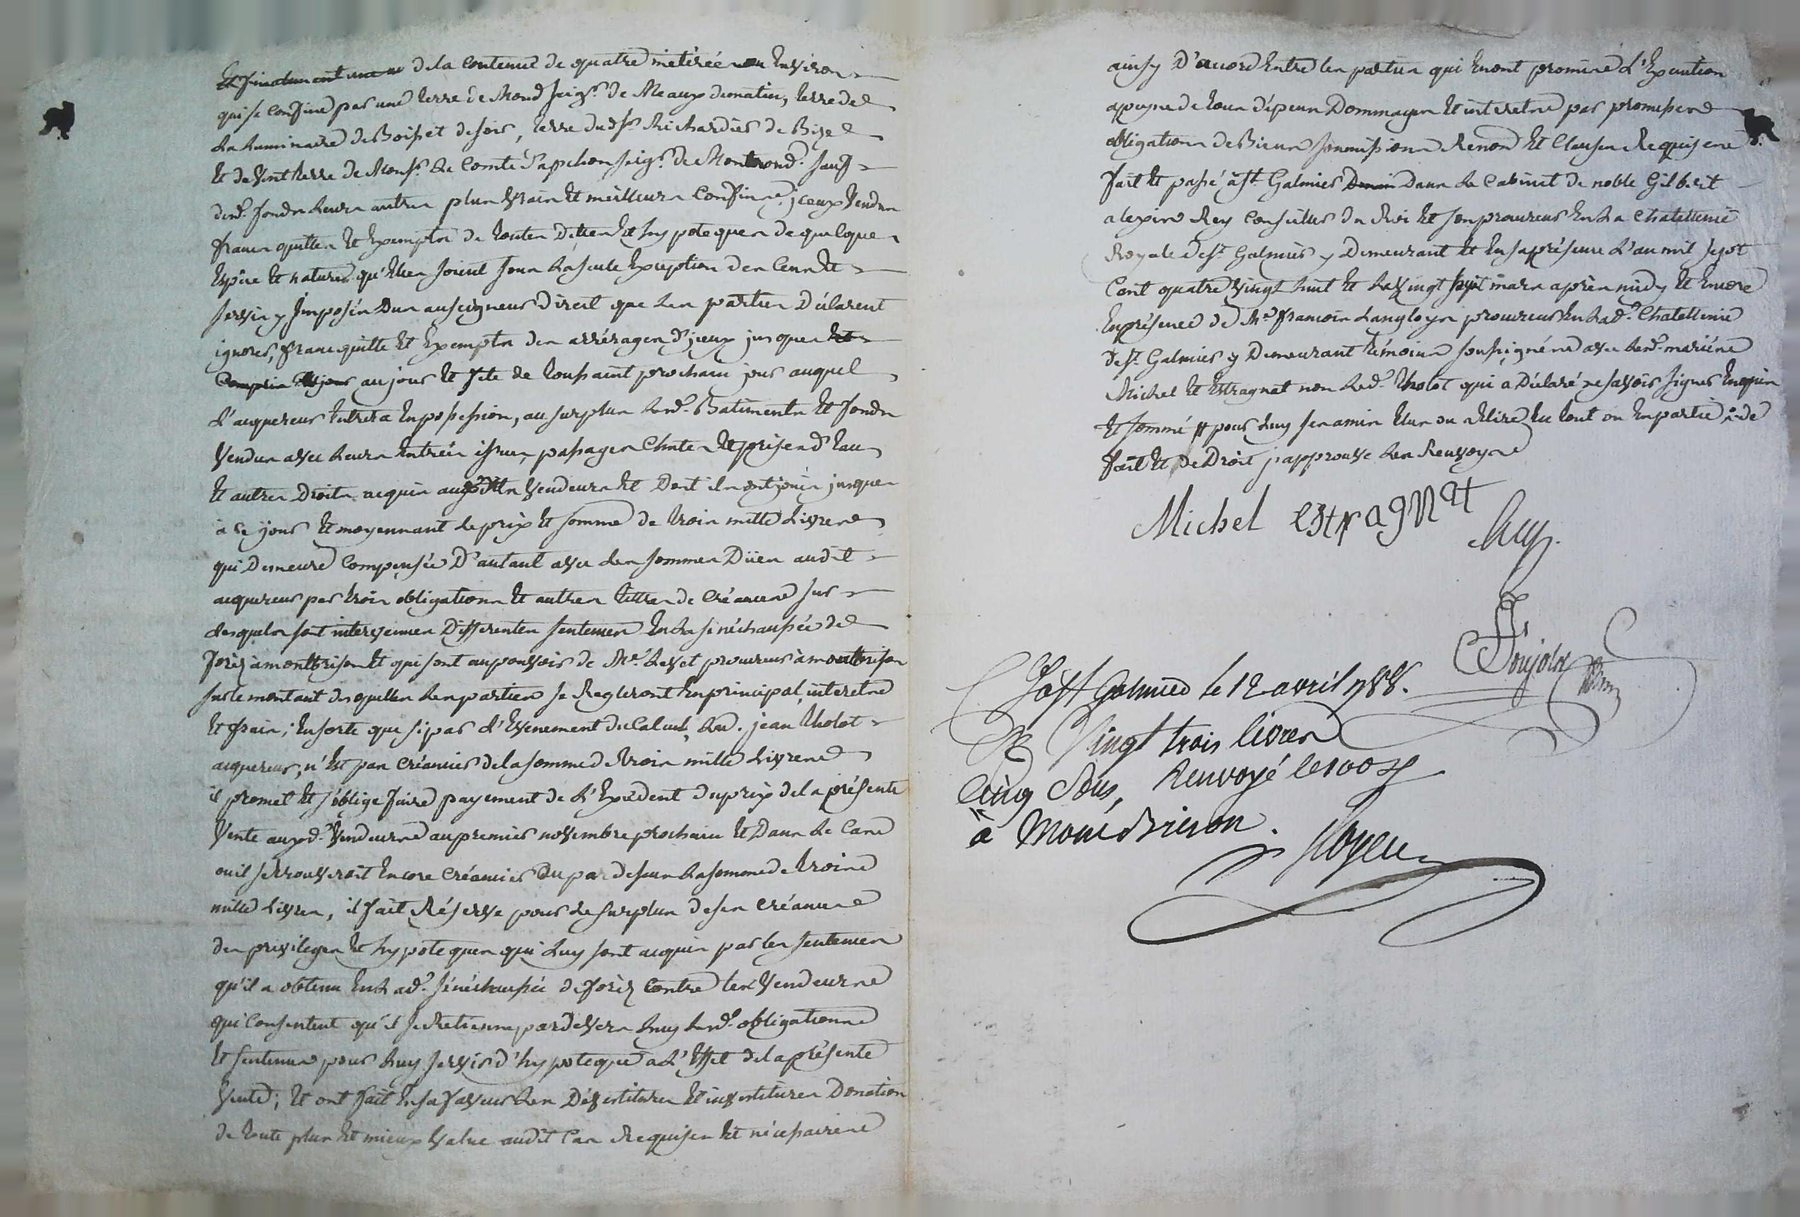 de la contenue de quatre metérée ou Environ
qui se confine par une terre de Mond. seigr. de Meaux de matin, terre de
La Luminaire de Boisset de soir, terre dudsr. Richardier de Bize
et de vent terre de Monsr. Le Comte d'apchon seigr. de Montrond. sauf
desd. fonds Leurs autres plus vrais et meilleurs Confins, iceux vendus
francs quittes et Exempts de toutes Dettes et hypoteques de quelque
Espéce et nature qu'Elles soient sous La seule Exception des Cens et
servis y Imposés Dus au seigneur direct que Les parties Déclarent
ignorer, franc quitte et Exempts des arrérages d'jceux jusques
au jour et fete de toussaint prochain jour auquel
L'aquereur Entrera En possession, au surplus Lesd. Batiments et fonds
Vendus avec Leurs Entrées issues, passages Chutes et prises d'Eau
et autres Droits acquis auxdits Vendeurs et Dont ils ont joui jusques
à ce jour et moyennant le prix et somme de trois mille Livres
qui Demeure Compensée D'autant avec Les sommes Dües audit
acquereur par trois obligations et autres titres de Créances sur
Lesquels sont intervenues Differentes sentences En La sénéchaussée de
forêz à montbrison et qui sont au pouvoir de Me. procureur à montbrison
sur le montant desquelles Les parties se Regleront En principal, interets
et frais; En sorte que si par L'Evenement du Calcul, Led. jean tholot
acquereur, n'Est pas Créancier de la somme de trois mille Livres
il promet et s'oblige faire payement de L'Excédent du prix de la présente
Vente auxd. Vendeurs au premier novembre prochain et Dans Le Cas
ou il se trouveroit Encore Créancier au par dessus La somme de trois
mille Livres, il fait Réserve pour Le surplus de ses Créances
des privileges et hypoteques qui Luy sont acquis par les sentences
qu'il a obtenu En Lad. sénéchaussée de forêz Contre Les Vendeurs
qui Consentent qu'il se Retienne par devers Luy Lesd. obligations
et sentences pour Luy servir d'hypoteque a L'Effet de la présente
Vente; et ont fait En sa faveur Les Dévestitures et investitures Donation
de toute plus et mieux Value audit Cas Requises et nécessaires
ainsy D'accord Entre les parties qui En ont promis L'Execution
a peyne de tous dépens Dommages et interets par promesses
obligation de Biens soumissions Renon. et Clauses Requises
fait et passé à St. Galmier Dans Le Cabinet de noble Gilbert
alexis Rey Conseiller du Roi et son procureur En La Chatellenie
Royale de St. Galmier y Demeurant et En sa présence L'an mil sept
Cent quatre Vingt huit et Le Vingt sept mars après midy et Encore
En présence de Me. françois Langlois procureur En Lad. Chatellenie
de St. Galmier y Demeurant témoins soussignés avec Lesd. mariés
Michel et Estragnat non Led. tholot qui a Déclaré ne savoir signer Enquis
et sommé pour Luy ses amis Elus ou a Elire En tout ou En partie
fait et De Droit j'approuve Les Renvoys
Michel Estragnat
Rey.
à St Galmier le 12 avril 1788.
R Vingt trois livres
Cinq Sous, Renvoyé le 100e
à Montbrison.